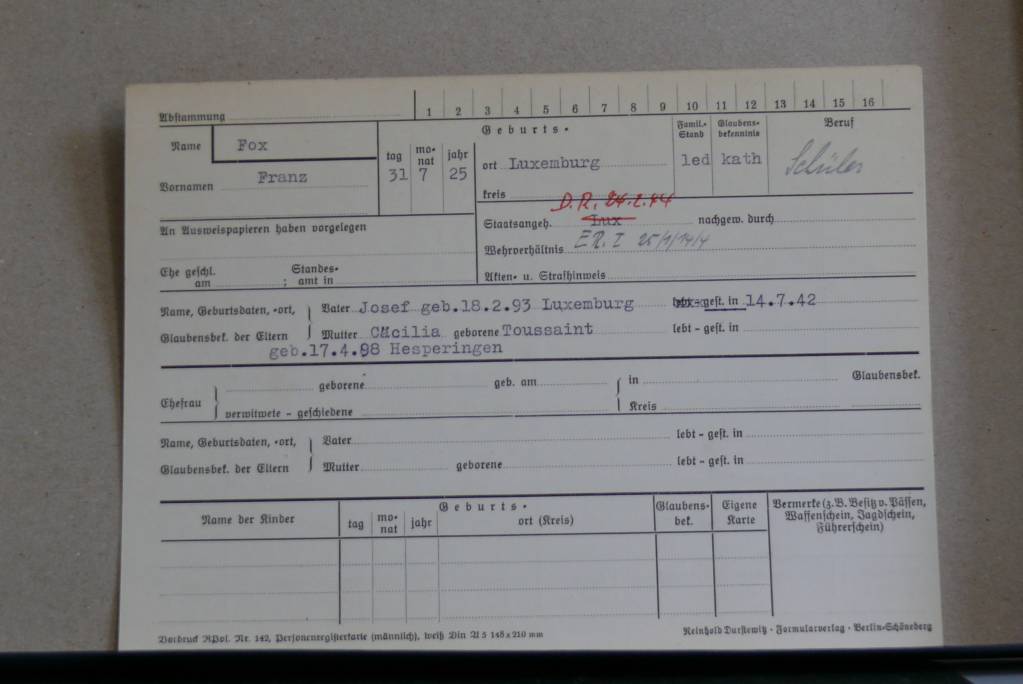 Abstammung 1 2 3 4 5 6 7 8 9 10 11 12 13 14 15 16
Name Fox
Vornamen Franz
tag monat jahr
31 7 25
Geburts-
ort Luxemburg
kreis
Famil.-Stand
led
Glaubens-bekenntnis
kath
Beruf
Schüler
An Ausweispapieren haben vorgelegen
D.R. 24.2.44
Staatsangeh. Lux nachgew. durch
Wehrverhältnis ER. I 25/1/14/4
Ehe geschl. Standes-
am ; amt in
Akten- u. Strafhinweis
Name, Geburtsdaten, -ort, Vater Josef geb.18.2.93 Luxemburg lebt - gest. in 14.7.42
Glaubensbek. der Eltern Mutter Cäcilia geborene Toussaint lebt - gest. in
geb.17.4.98 Hesperingen
geborene geb. am in Glaubensbek.
Ehefrau
verwitwete - geschiedene Kreis
Name, Geburtsdaten, -ort, Vater lebt - gest. in
Glaubensbek. der Eltern Mutter geborene lebt - gest. in
Name der Kinder
Geburts-
tag monat jahr ort (Kreis)
Glaubens-bek.
Eigene Karte
Vermerke (z.B. Besitz v. Pässen,
Waffenschein, Jagdschein,
Führerschein)
Vordruck RPol. Nr. 142, Personenregisterkarte (männlich), weiß Din A 5 148 x 210 mm
Reinhold Durstewitz · Formularverlag · Berlin-Schöneberg